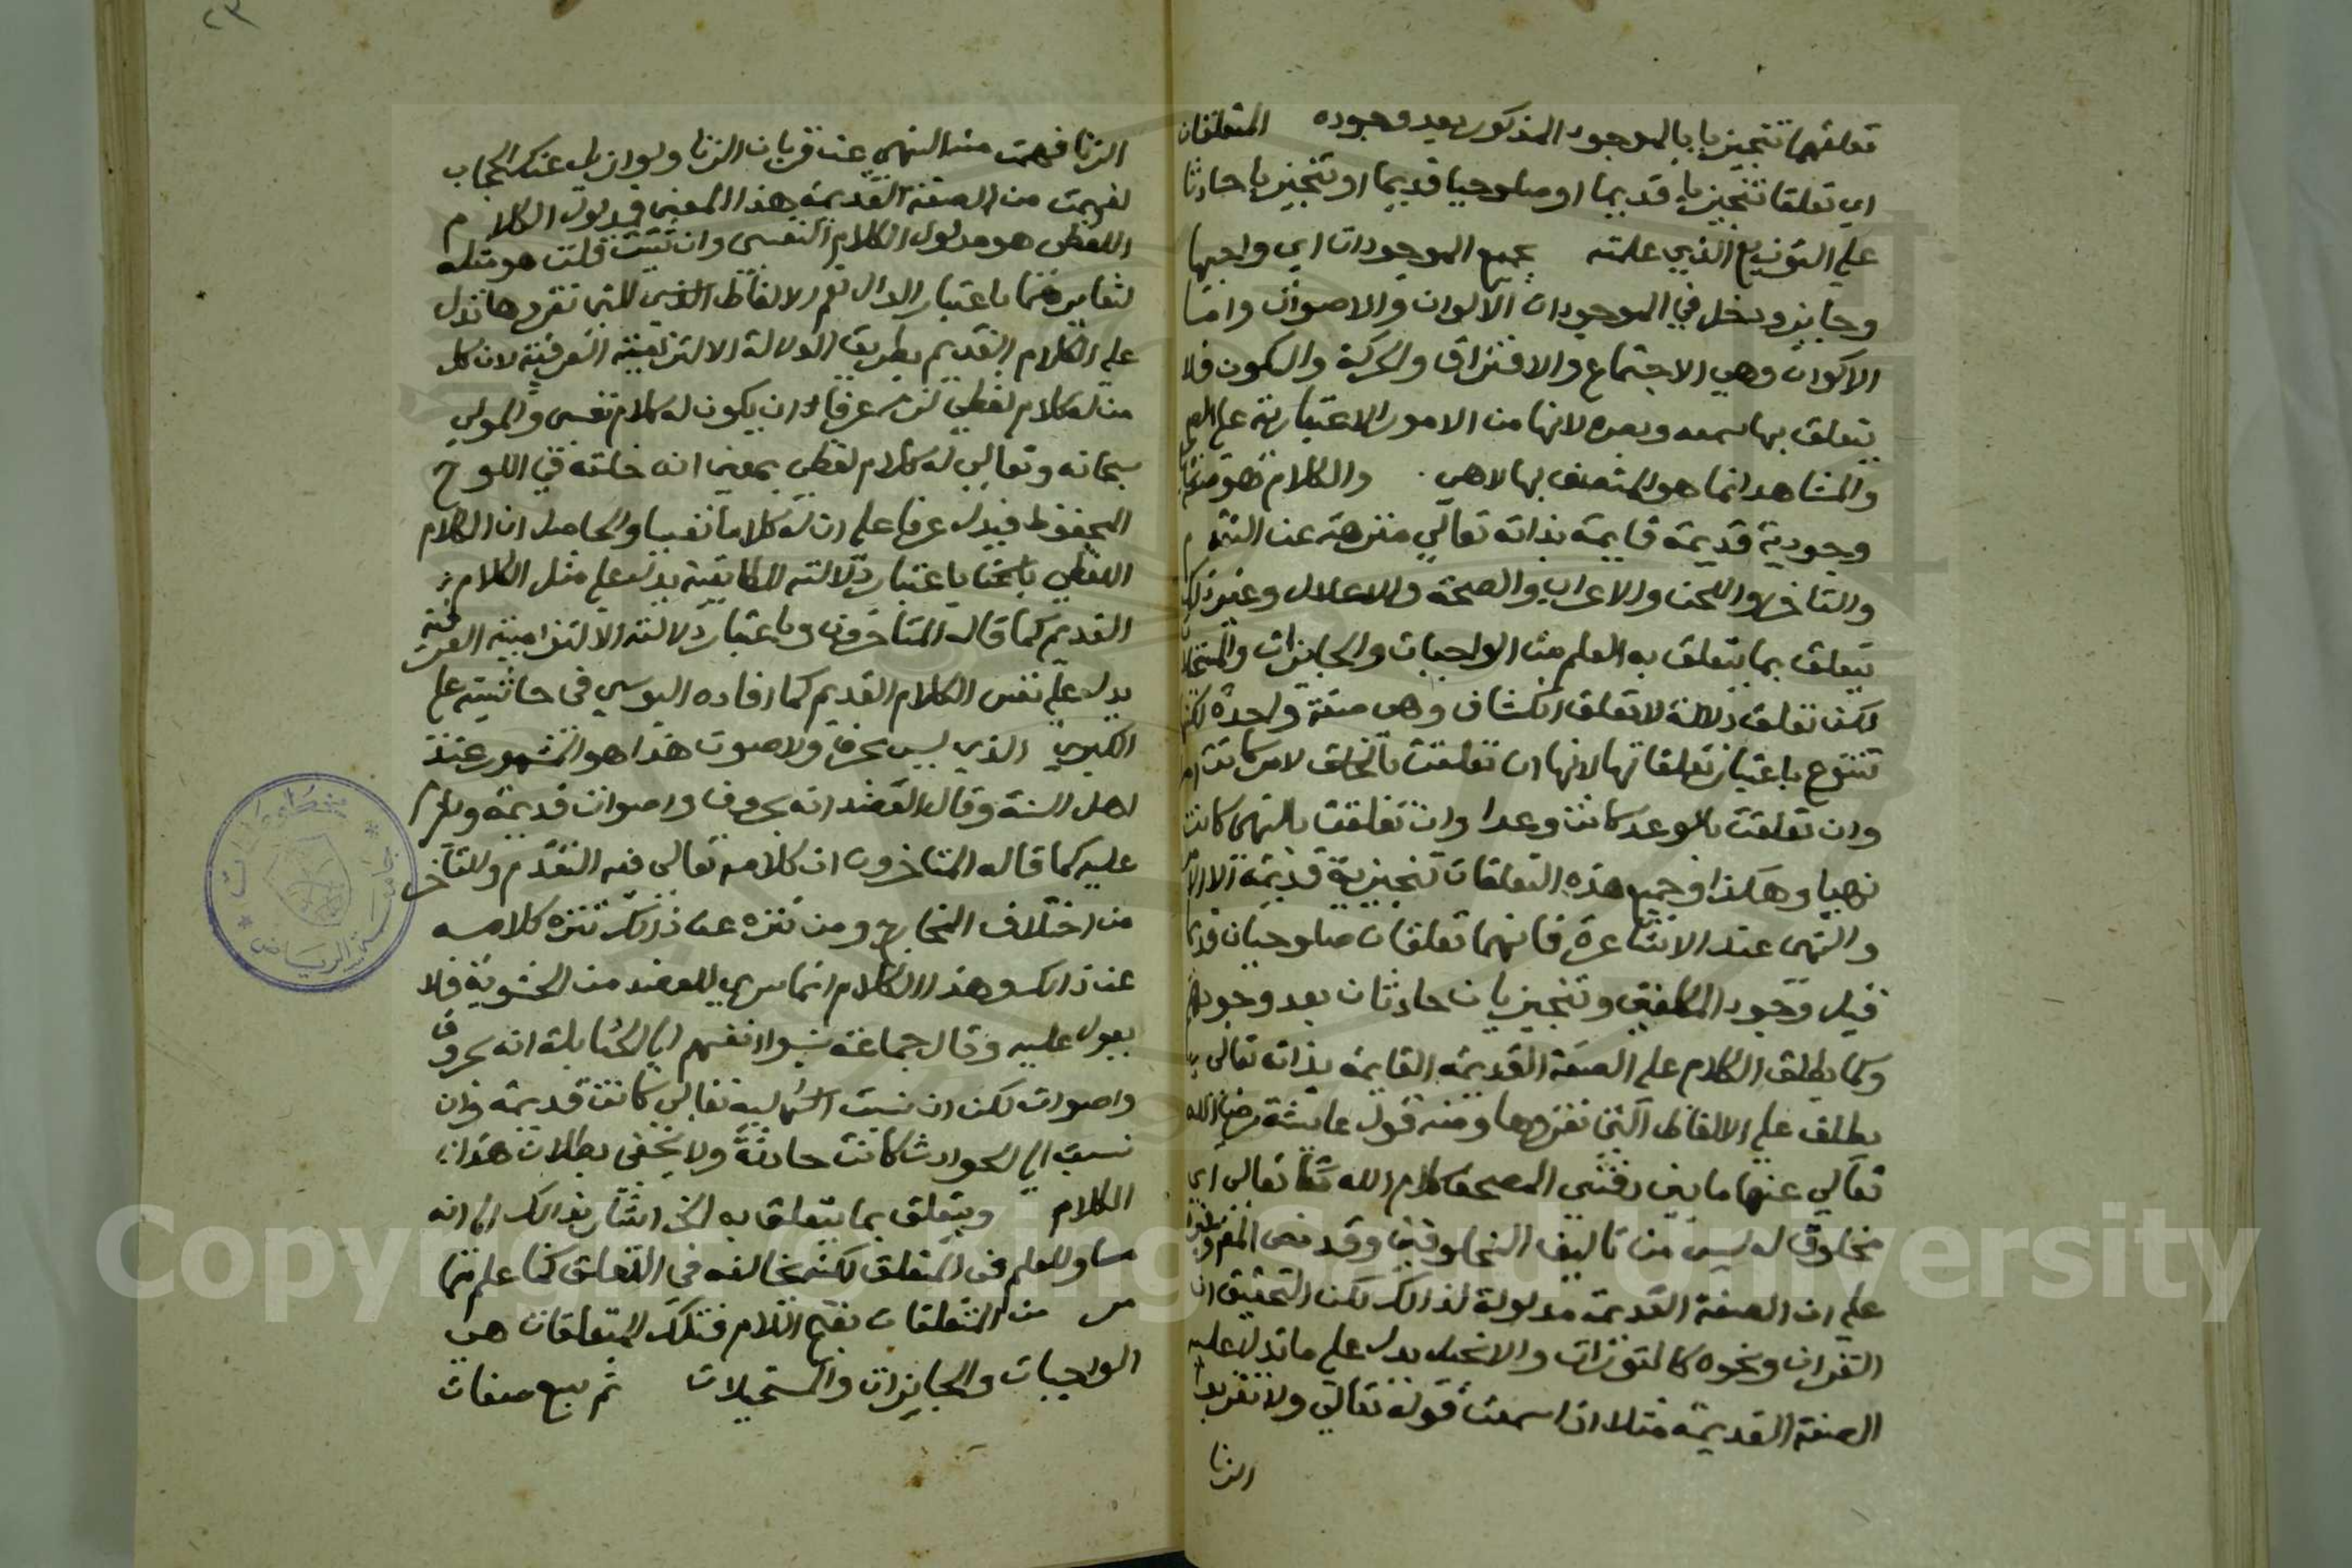 تعلقهما تنجيزيا بالموجود المذكور بعد وجوده المتعلقان
اي تعلقا تنجيزيا قديما او صلوحيا قديما او تنجيزيا حادثا
علي التوزيع الذي علمته بجميع الموجودات اي واجبها
وجايزه ودخل في الموجودات الالوان والاصوات واما
الاكوان وهي الاجتماع والافتراق والحركة والسكون فلا
يتعلق بها سمعه وبصره لانها من الامور الاعتبارية علي
والمشاهد انما هو المتصف بها لا هي والكلام هو صفة
وجودية قديمة قايمة بذاته تعالي منزهة عن التقدم
والتاخر واللحن والاعراب والصحة والاعلال وغير ذلك
يتعلق بما يتعلق به العلم من الواجبات والجايزات والمستحيلات
لكن تعلق دلالة لا تعلق انكشاف وهي صفة واحدة لكن
تتنوع باعتبار تعلقاتها لانها ان تعلقت بالخلق لامر كانت امرا
وان تعلقت بالوعد كانت وعدا وان تعلقت بالنهي كانت
نهيا وهكذا وجميع هذه التعلقات تنجيزية قديمة الا الامر
والنهي عند الاشاعرة فانهما تعلقان صلوحيان قديما
قبل وجود المكلفين وتنجيزيان حادثان بعد وجودهم
وكما يطلق الكلام علي الصفة القديمة القايمة بذاته تعالي
يطلق علي الالفاظ التي نقروها ومنه قول عايشة رضي الله
تعالي عنها ما بين دفتي المصحف كلام الله تعالي اي
مخلوق له ليس من تاليف المخلوقين وقد نص
علي ان الصفة القديمة مدلولة لذالك لكن التحقيق ان
القران ونحوه كالتوراة والانجيل يدل علي ما تدل عليه
الصفة القديمة مثلا اذا سمعت قوله تعالي ولا تقربوا
الزنا
الزنا فهمت منه النهي عن قربان الزنا ولو ازيل عنك الحجاب
لفهمت من الصفة القديمة هذا المعني فمدلول الكلام
اللفظي هو مدلول الكلام النفسي وان شئت قلت هو مثله
لتغايرهما باعتبار الدال نعم الالفاظ التي نقروها تدل
علي الكلام القديم بطريق الدلالة الالتزامية العرفية لان كل
من له كلام لفظي لزم عرفا ان يكون له كلام نفسي والمولي
سبحانه وتعالي له كلام لفظي بمعني انه خلقه في اللوح
المحفوظ فيدل عرفا علي ان له كلاما نفسيا والحاصل ان الكلام
اللفظي باعتبار دلالته المطابقية يدل علي مثل الكلام
القديم كما قاله المتاخرون وباعتبار دلالته الالتزامية العرفية
يدل علي نفس الكلام القديم كما افاده اليوسي في حاشيته علي
الكبري الذي ليس بحرف ولا صوت هذا هو المشهور عند
اهل السنة وقال العضد انه بحروف واصوات قديمة ويلزم
عليه كما قاله المتاخرون ان كلامه تعالي فيه التقدم والتاخر
من اختلاف المخارج ومن تنزه عن ذلك تنزه كلامه
عن ذالك وهذا الكلام انما سري للعضد من الحشوية فلا
يعول عليه وقال جماعة نسبوا انفسهم الي الحنابلة انه بحروف
واصوات لكن ان نسبت اليه تعالي كانت قديمة وان
نسبت الي الحوادث كانت حادثة ولا يخفي بطلان هذا
الكلام ويتعلق بما يتعلق به الخ اشار بذالك الي انه
مساو للعلم في المتعلق لكنه مخالفه في التعلق كما علم مما
مر من المتعلقات بفتح اللام فتلك المتعلقات هي
الواجبات والجايزات والمستحيلات ثم سبع صفات
Copyright © King Saud University